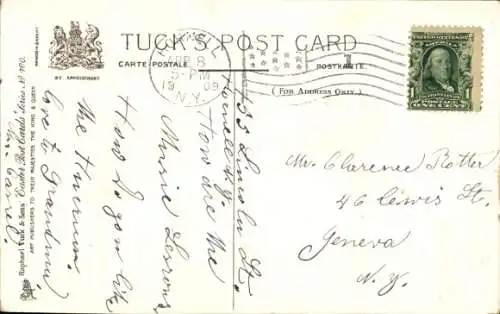 TUCK'S POST CARD
CARTE POSTALE
POSTKARTE
(FOR ADDRESS ONLY.)
BY APPOINTMENT
Raphael Tuck & Sons' "Easter" Post Cards Series No. 100.
ART PUBLISHERS TO THEIR MAJESTIES THE KING & QUEEN
8
5-PM
1909
N.Y.
ONE CENT
55 Lincoln St.
Hornell N.Y.
How are the
Music Lessons
How do you like
the
love to Grandma
Mr. Clarence Potter
46 Lewis St.
Geneva
N.Y.